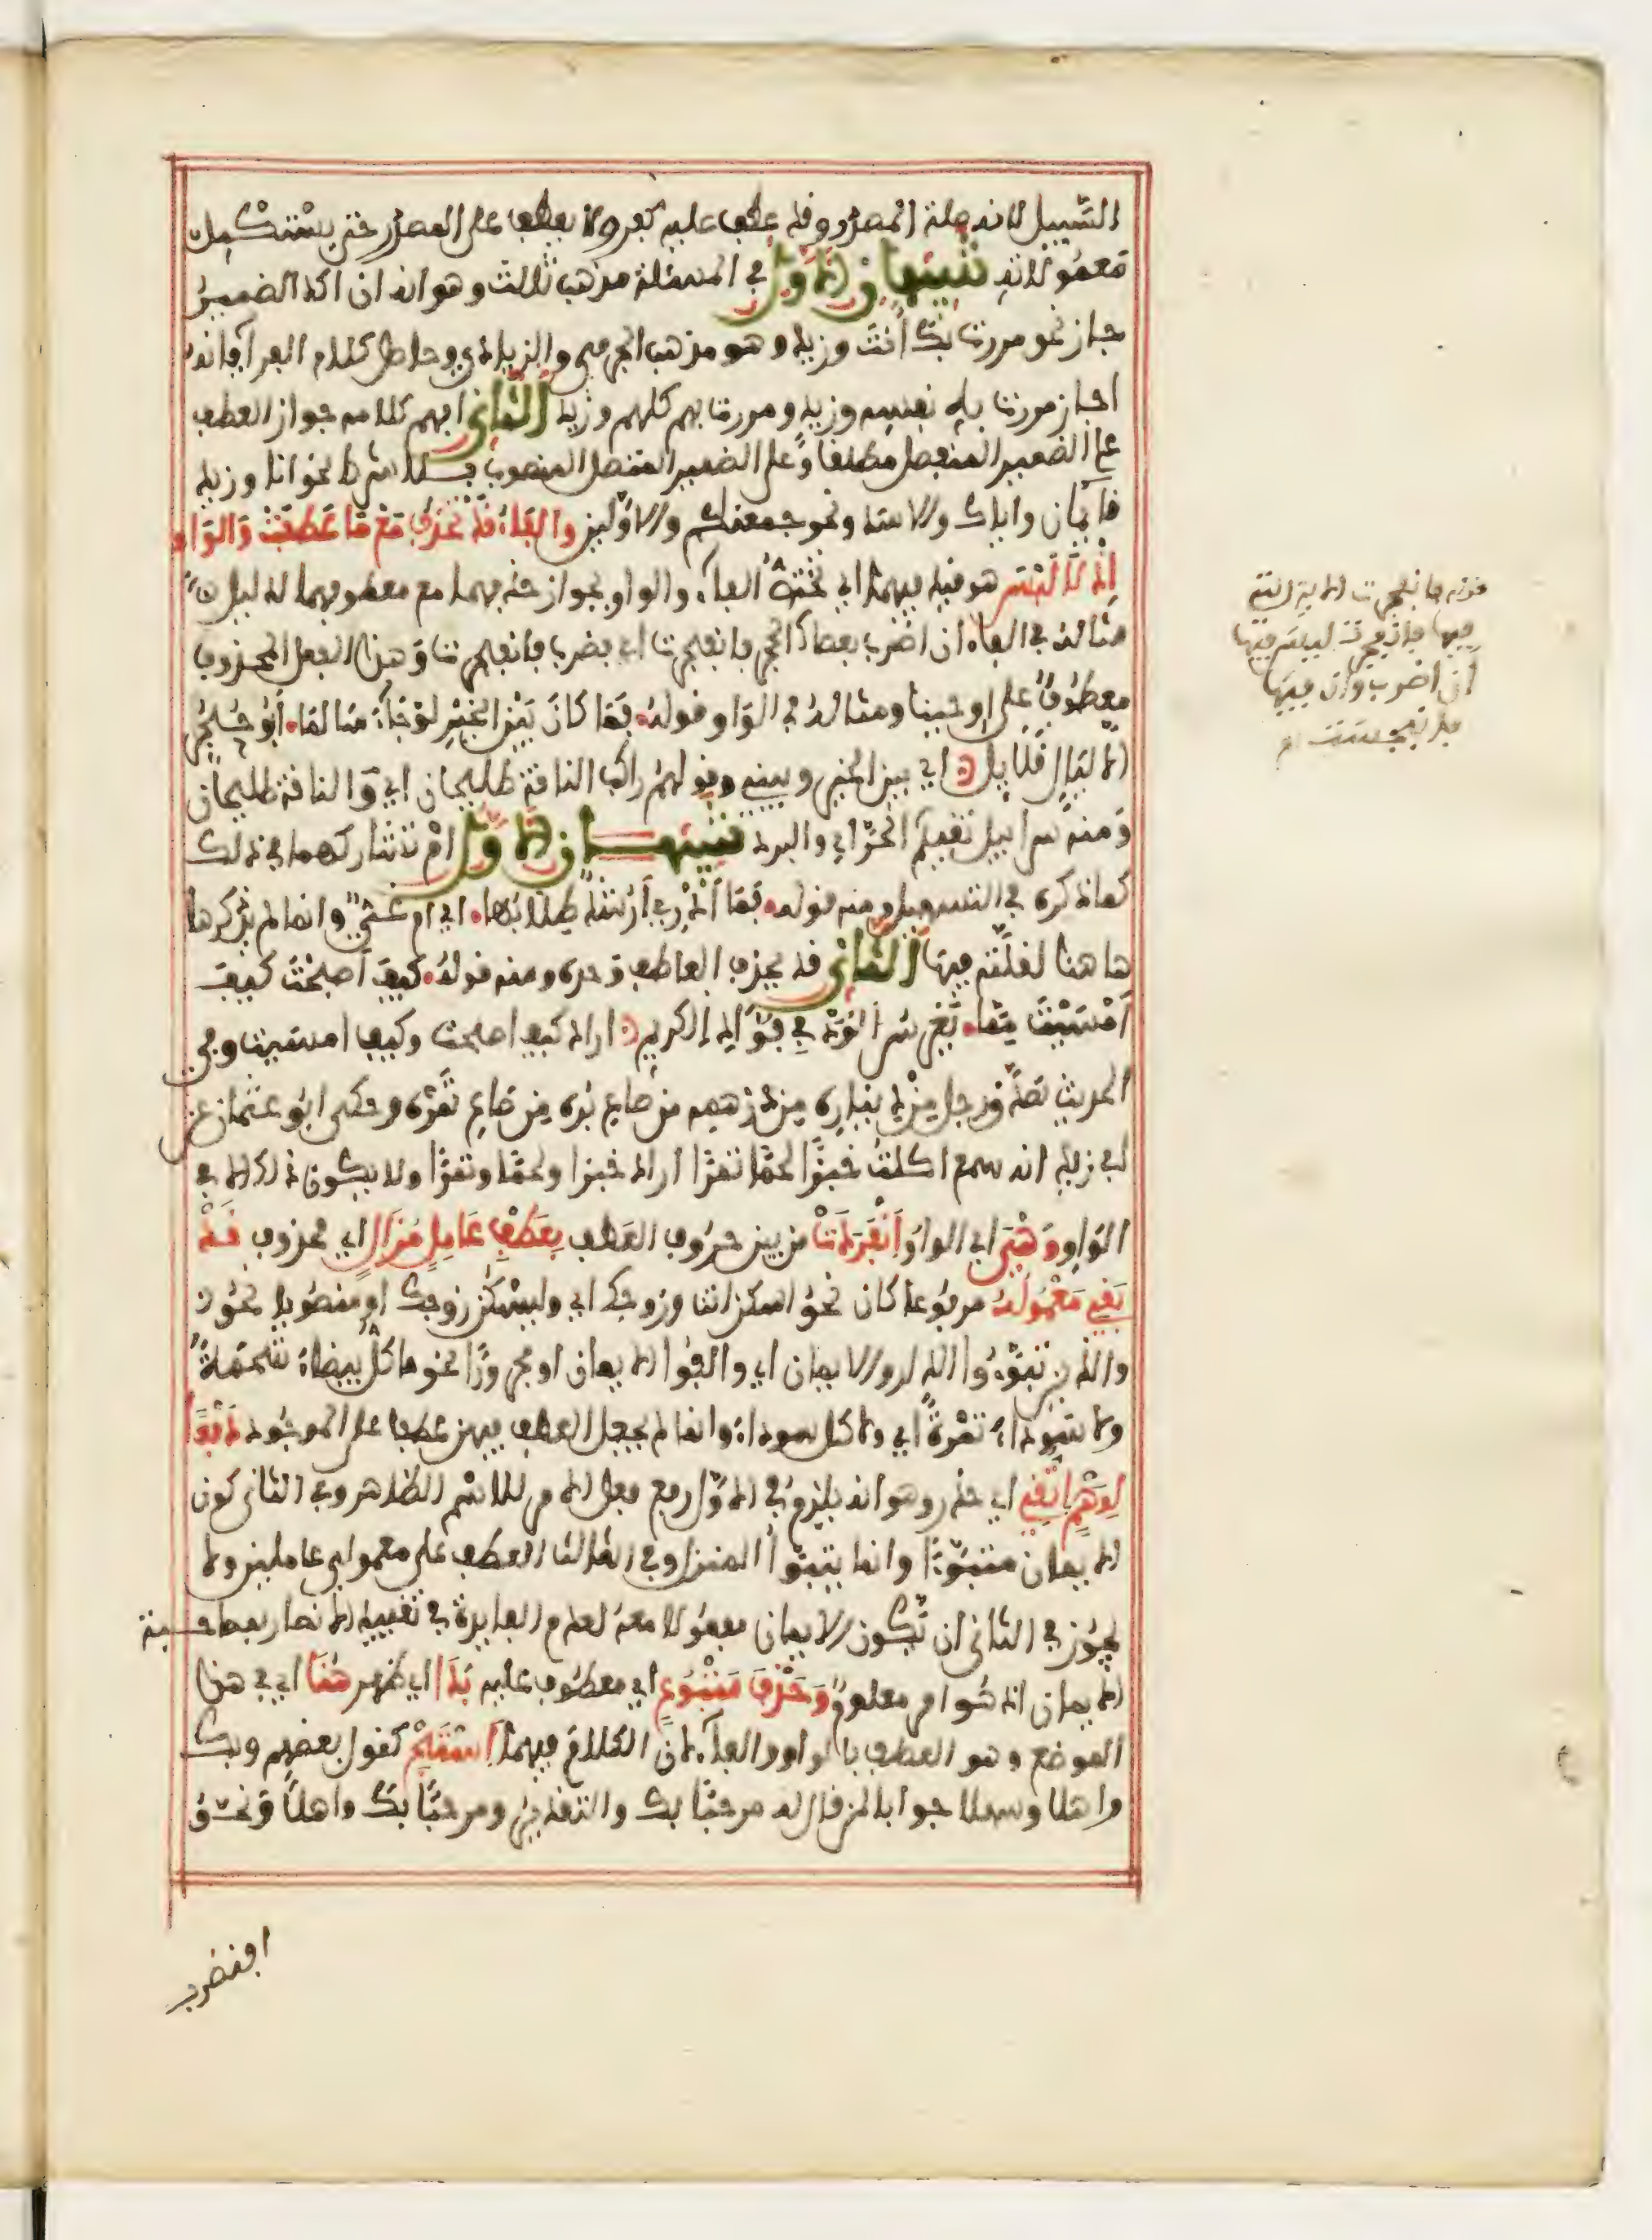 السبيل لانه صلة المصدر وقد عطف عليه كفر ولا يعطف على المصدر حتى يستكمل
معمولاته تنبيهان الاول في المسئلة مذهب ثالث وهو انه ان اكد الضمير
جاز نحو مررت بك أنت وزيد وهو مذهب الجرمي والزيادي وحاصل كلام الفراء فانه
اجاز مررت به نفسه وزيد ومررت بهم كلهم وزيد الثاني افهم كلامه جواز العطف
على الضمير المنفصل مطلقا وعلى الضمير المتصل المنصوب بلا شرط نحو انا وزيد
قائمان واياك والاسد ونحو جمعنكم والاولين والفاء قد تحذف مع ما عطفت والواو
اذ لا لبس هو قيد فيهما اي تختص الفاء والواو بجواز حذفهما مع معطوفهما لدليل
مثاله في الفاء ان اضرب بعصاك الحجر فانفجرت اي فضرب فانفجرت وهذا الفعل المحذوف
معطوف على اوحينا ومثاله في الواو قوله فما كان بين الخير لو جاء سالما ابو حجر
الا ليال قلايل اي بين الخير وبيني وقولهم راكب الناقة طليحان اي والناقة طليحان
ومنه سرابيل تقيكم الحر اي والبرد تنبيهان الاول ام تشاركهما في ذلك
كما ذكره في التسهيل ومنه قوله فما أدري أرشد طلابها اي ام غي وانما لم يذكرها
هاهنا لقلته فيها الثاني قد يحذف العاطف وحده ومنه قوله كيف أصبحت كيف
أمسيت مما يغرس الود في فؤاد الكريم اراد كيف اصبحت وكيف امسيت وفي
الحديث تصدق رجل من ديناره من درهمه من صاع بره من صاع تمره وحكى ابو عثمان عن
ابي زيد انه سمع اكلت خبزا لحما تمرا اراد خبزا ولحما وتمرا ولا يكون ذلك الا في
الواو وهي اي الواو انفردت من بين حروف العطف بعطف عامل مزال اي محذوف قد
بقي معموله مرفوعا كان نحو اسكن انت وزوجك اي وليسكن زوجك او منصوبا نحو
والذين تبوءوا الدار والايمان اي والفوا الايمان او مجرورا نحو ما كل بيضاء شحمة
ولا سوداء تمرة اي ولا كل سوداء وانما لم يجعل العطف فيهن عطفا على الموجود دفعا
لوهم اتقي اي حذر وهو انه يلزم في الاول رفع فعل الامر للاسم الظاهر وفي الثاني كون
الايمان متبوءا وانما يتبوأ المنزل وفي الثالث العطف على معمولي عاملين ولا
يجوز في الثاني ان تكون الايمان مفعولا معه لعدم الفايدة في تقييد الانصار بمصاحبة
الايمان اذ هو امر معلوم وحذف متبوع اي معطوف عليه بدا اي ظهر هنا اي في هذا
الموضع وهو العطف بالواو والفاء لان الكلام فيهما استبح كقول بعضهم وبك
واهلا وسهلا جوابا لمن قال له مرحبا بك والتقدير ومرحبا بك واهلا ونحو
افنضرب
قوله فانفجرت الاية التي
فيها فانفجرت ليس فيها
أن اضرب وان فيها
فانبجست اه